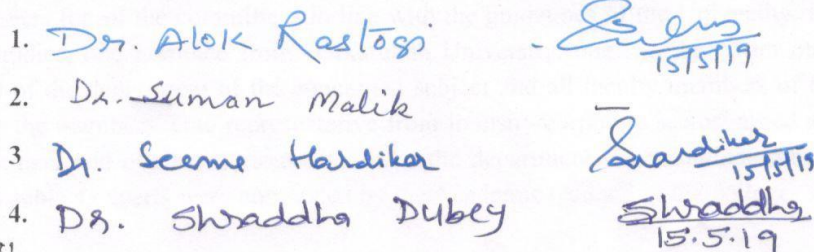 1. Dr. Alok Rastogi 15/5/19
2. Dr. Suman Malik
3 Dr. Seema Hardikar Shardikar 15/5/19
4. Dr. Shraddha Dubey Shraddha 15.5.19